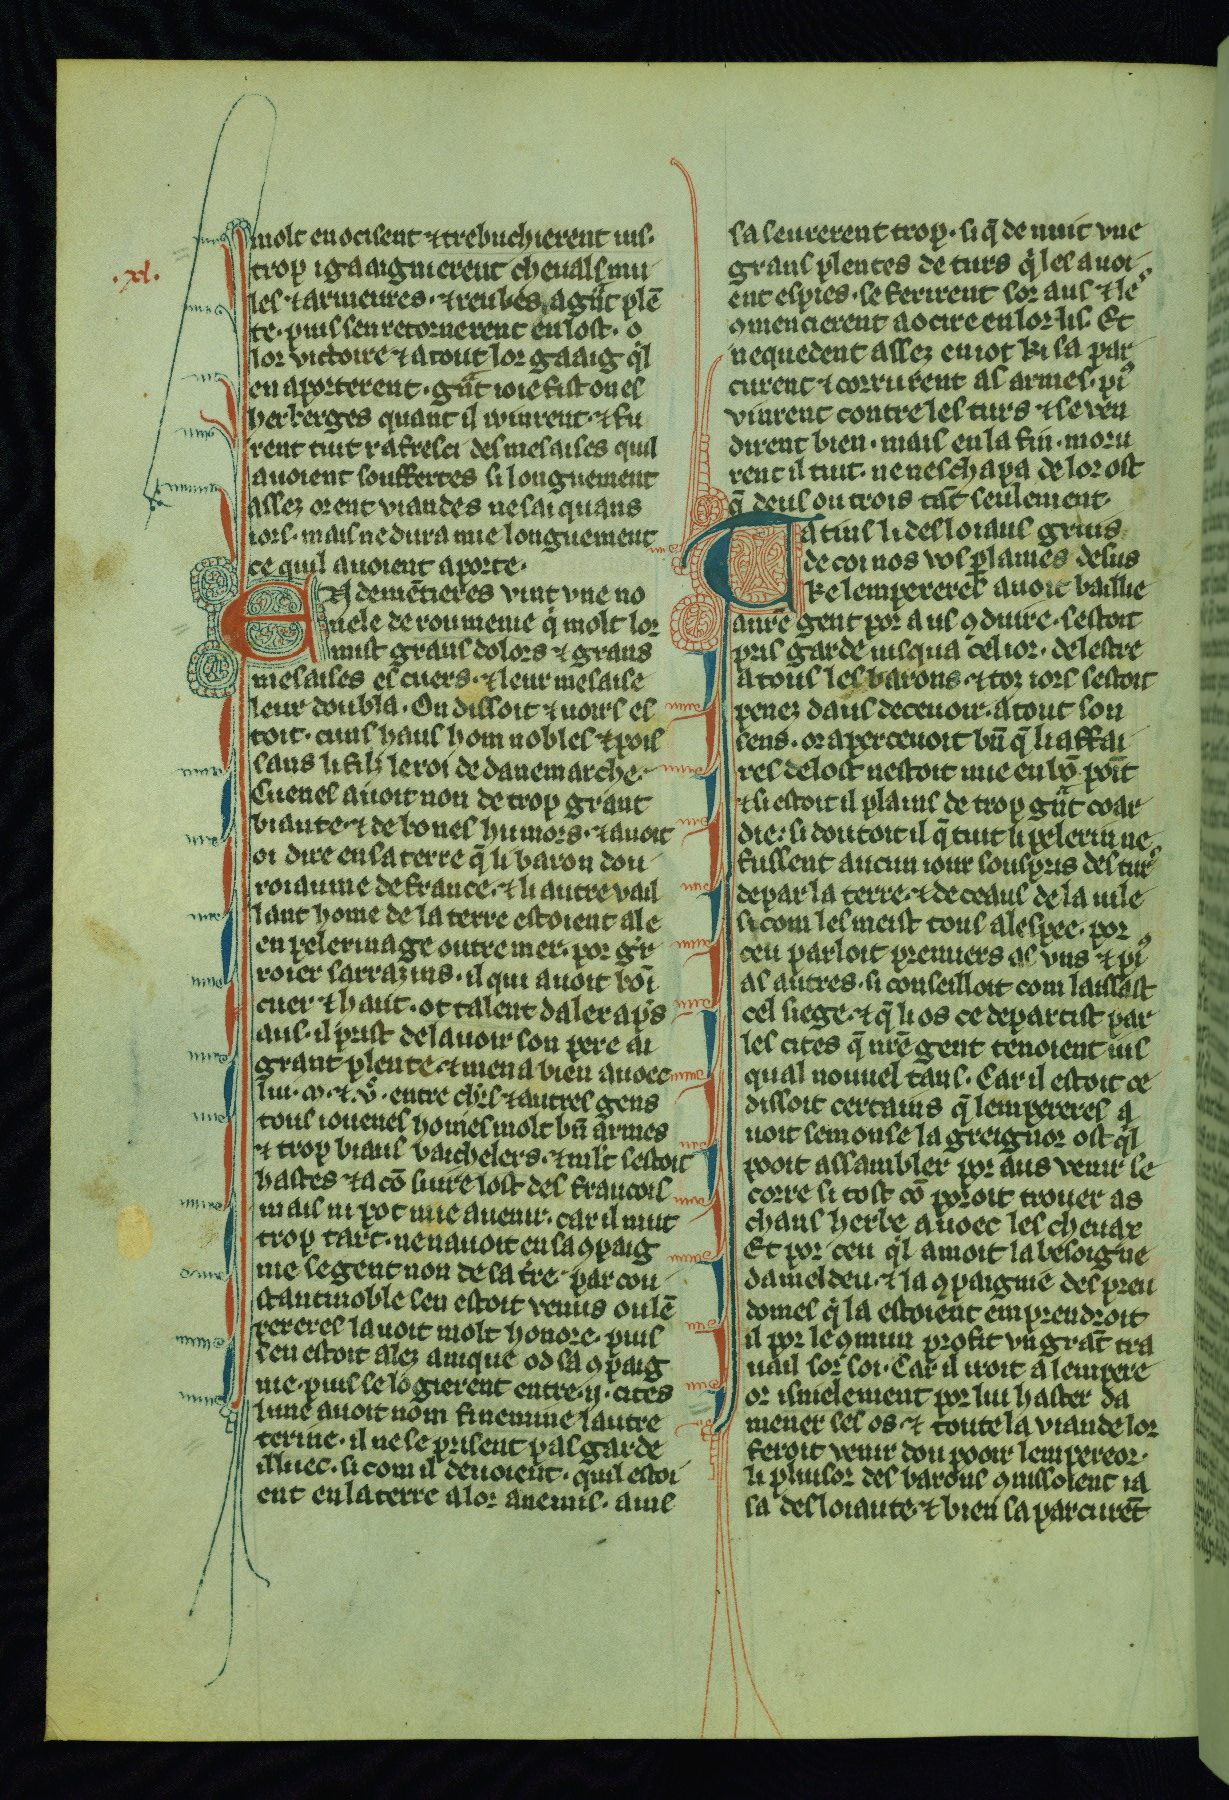 .xl.
molt en ocisent ⁊ trebuchierent ius.
trop i gaaignierent cheuals mu
les ⁊ armeures. ⁊ reubes a gͣnt plē
te. puis sen retornerent en lost. o
lor victoire ⁊ a tout lor gaaig qͥl
en aporterent. gͣnt ioie fist on es
herberges quant il uinrent. ⁊ fu
rent tuit rafresci des mesaises quil
auoient souffertes si longuement
assez orent uiandes ne sai quans
iors. mais ne dura mie longuement
ce quil auoient aporte.
EN demētieres vint vne no
uele de roumenie qͥ molt lor
mist grans dolors ⁊ grans
mesaises es cuers. ⁊ leur mesaise
leur doubla. On dissoit ⁊ uoirs es
toit. cuns haus hom nobles ⁊ pois
sans li filz le roi de danemarche.
Suenes auoit non de trop grant
biaute. ⁊ de bones humors. ⁊ auoit
oi dire en sa terre q̄ li baron dou
roiaume de france. ⁊ li autre vail
lant home de la terre estoient ale
en pelerinage outre mer. por gͬr
roier sarrazins. il qui auoit boī
cuer ⁊ haut. ot talent daler apͬs
aus. il prist de lauoir son pere ai
grant plente. ⁊ mena bien auoec
lui .m. ⁊ .vͨ. entre chͬls ⁊ autres gens
tous iouenes homes molt bn̄ armes
⁊ trop biaus baichelers. ⁊ mlt sestoit
hastes ⁊ a cō siure lost des francois
mais ni pot mie auenir. car il mut
trop tart. ne nauoit en sa ꝯpaig
nie se gent non de sa tͬre. par cou
stantinoble sen estoit venus ou lē
pereres lauoit molt honore. puis
sen estoit alez a nique od sa ꝯpaig
nie. puis se logierent entre .ij. cites
lune auoit nom finemine lautre
terme. il ne se prisent pas garde
illuec. si com il deuoient. quil estoi
ent en la terre a lor anemis. ains
sa seurerent trop. si q̄ de nuit vne
grans plentes de turs qͥ les auoi
ent espies. se ferirent sor aus ⁊ les
ꝯmencierent a ocire en lor lis. Et
nequedent assez en i ot ki sa par
curent ⁊ corrurent as armes. pͥ
vinrent contre les turs ⁊ se ven
dirent bien. mais en la fin. moru
rent il tuit. ne neschapa de lor ost
q̄ deus ou trois tāt seulement.
Tatins li desloiaus grius
de coi nos vos plames desus
ke lempereres auoit baillie
a nrē gent por aus ꝯduire. sestoit
pris garde iusqua cel ior. de lestre
a tous les barons. ⁊ toz iors sestoit
penez daus deceuoir. a tout son
sens. or aperceuoit bn̄ q̄ li affai
res de lost nestoit mie en bō point
⁊ si estoit il plains de trop gͣnt coar
die. si doutoit il q̄ tuit li pelerin ne
fussent aucun iour souspris des turs
de par la terre. ⁊ de ceaus de la uile
si com les meist tous a lespee. por
ceu parloit premiers as vns ⁊ pͥ
as autres. si conseilloit com laissast
cel siege. ⁊ q̄ li os ce departist par
les cites q̄ nrē gent tenoient iusq
qual nouuel tans. Car il estoit ce
dissoit certains q̄ lempereres a
uoit semonse la greignor ost qͥl
pooit assambler por aus venir se
corre si tost cō poroit trouer as
chans herbe auoec les cheuax
Et por ceu qͥl amoit la besoigne
dameldeu. ⁊ la ꝯpaignie des preu
domes qͥ la estoient emprendroit
il por le ꝯmun profit vn grāt tra
uail sor soi. Car il iroit a lempere
or isnielement por lui haster da
mener ses os. ⁊ toute la viande lor
feroit venir dou pooir lempereor.
li pluisor des barons ꝯnissoient ia
sa desloiaute. ⁊ bien sa parcurēt